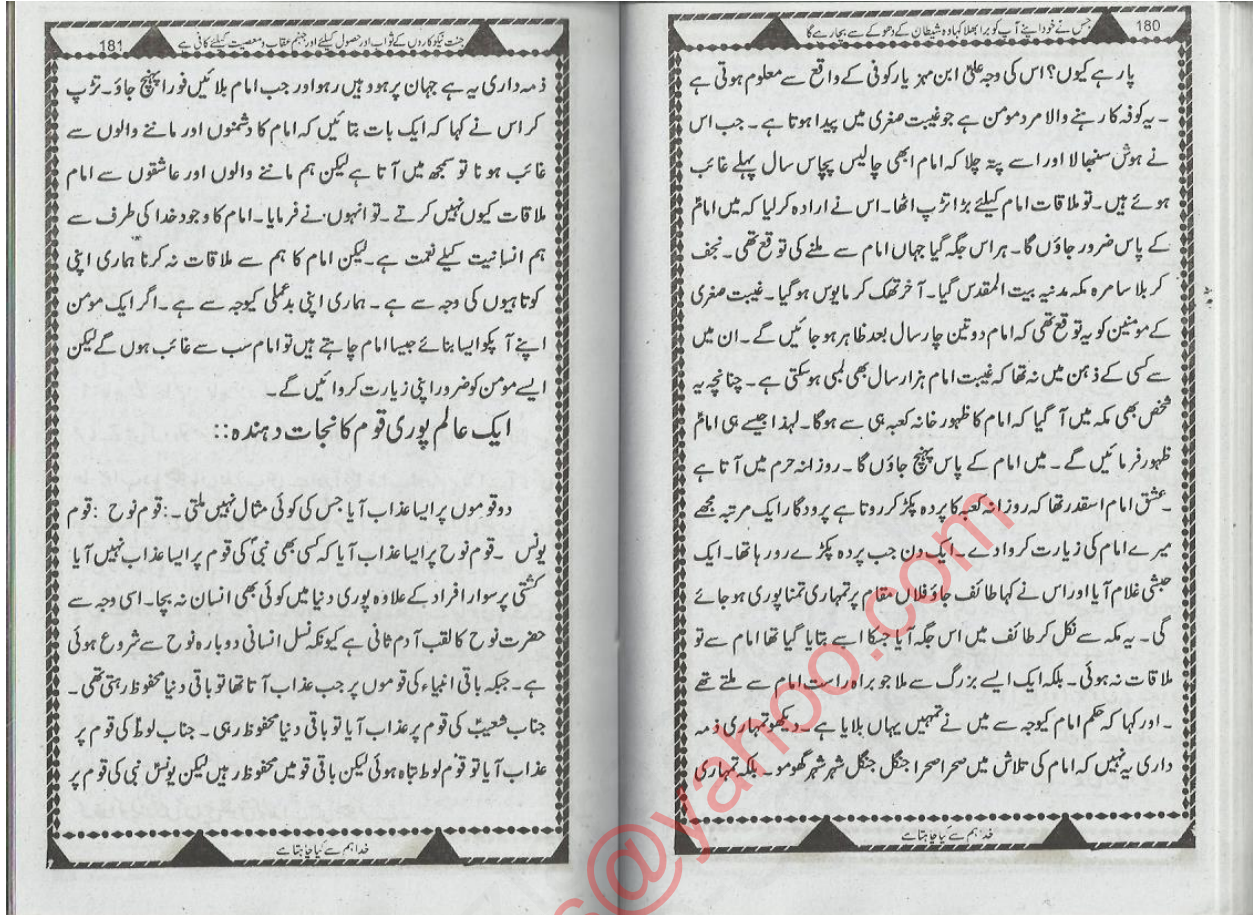 180
جس نے خود اپنے آپ کو برا بھلا کہا وہ شیطان کے دھوکے سے بچا رہے گا
پار ہے کیوں؟ اس کی وجہ علیؑ ابن مہزیار کوفی کے واقع سے معلوم ہوتی ہے
۔ یہ کوفہ کا رہنے والا مرد مومن ہے جو غیبت صغری میں پیدا ہوتا ہے۔ جب اس
نے ہوش سنبھالا اور اسے پتہ چلا کہ امام ابھی چالیس پچاس سال پہلے غائب
ہوئے ہیں۔ تو ملاقات امام کیلئے بڑا تڑپ اٹھا۔ اس نے ارادہ کر لیا کہ میں امامؑ
کے پاس ضرور جاؤں گا۔ ہر اس جگہ گیا جہاں امام سے ملنے کی توقع تھی۔ نجف
کربلا سامرہ مکہ مدنیہ بیت المقدس گیا۔ آخر تھک کر مایوس ہو گیا۔ غیبت صغری
کے مومنین کو یہ توقع تھی کہ امام دو تین چار سال بعد ظاہر ہو جائیں گے۔ ان میں
سے کسی کے ذہن میں نہ تھا کہ غیبت امام ہزار سال بھی لمبی ہو سکتی ہے۔ چنانچہ یہ
شخص بھی مکہ میں آ گیا کہ امام کا ظہور خانہ کعبہ ہی سے ہوگا۔ لہذا جیسے ہی امامؑ
ظہور فرمائیں گے۔ میں امام کے پاس پہنچ جاؤں گا۔ روزانہ حرم میں آتا ہے
۔ عشق امام اسقدر تھا کہ روزانہ کعبہ کا پردہ پکڑ کر روتا ہے پرودگار ایک مرتبہ مجھے
میرے امام کی زیارت کروا دے۔ ایک دن جب پردہ پکڑے رو رہا تھا۔ ایک
حبشی غلام آیا اور اس نے کہا طائف جاؤ فلاں مقام پر تمہاری تمنا پوری ہو جائے
گی۔ یہ مکہ سے نکل کر طائف میں اس جگہ آیا جسکا اسے بتایا گیا تھا امام سے تو
ملاقات نہ ہوئی۔ بلکہ ایک ایسے بزرگ سے ملا جو براہ راست امام سے ملتے تھے
۔ اور کہا کہ حکم امام کیوجہ سے میں نے تمہیں یہاں بلایا ہے۔ دیکھو تمہاری ذمہ
داری یہ نہیں کہ امام کی تلاش میں صحرا صحرا جنگل جنگل شہر شہر گھومو۔ بلکہ تمہاری
خدا ہم سے کیا چاہتا ہے
181
جنت نیکو کاروں کے ثواب اور حصول کیلئے اور جہنم عقاب و معصیت کیلئے کافی ہے
ذمہ داری یہ ہے جہان پر ہو وہیں رہو اور جب امام بلائیں فورا پہنچ جاؤ۔ تڑپ
کر اس نے کہا کہ ایک بات بتائیں کہ امام کا دشمنوں اور ماننے والوں سے
غائب ہونا تو سمجھ میں آتا ہے لیکن ہم ماننے والوں اور عاشقوں سے امام
ملاقات کیوں نہیں کرتے۔ تو انہوں نے فرمایا۔ امام کا وجود خدا کی طرف سے
ہم انسانیت کیلے نعمت ہے۔ لیکن امام کا ہم سے ملاقات نہ کرنا ہماری اپنی
کوتاہیوں کی وجہ سے ہے۔ ہماری اپنی بدعملی کیوجہ سے ہے۔ اگر ایک مومن
اپنے آپکو ایسا بنائے جیسا امام چاہتے ہیں تو امام سب سے غائب ہوں گے لیکن
ایسے مومن کو ضرور اپنی زیارت کروائیں گے۔
ایک عالم پوری قوم کا نجات دہندہ::
دو قوموں پر ایسا عذاب آیا جس کی کوئی مثال نہیں ملتی۔: قوم نوح : قوم
یونس ۔ قوم نوح پر ایسا عذاب آیا کہ کسی بھی نبیؑ کی قوم پر ایسا عذاب نہیں آیا
کشتی پر سوار افراد کے علاوہ پوری دنیا میں کوئی بھی انسان نہ بچا۔ اسی وجہ سے
حضرت نوح کا لقب آدم ثانی ہے کیونکہ نسل انسانی دوبارہ نوح سے شروع ہوئی
ہے۔ جبکہ باقی انبیاء کی قوموں پر جب عذاب آتا تھا تو باقی دنیا محفوظ رہتی تھی۔
جناب شعیبؑ کی قوم پر عذاب آیا تو باقی دنیا محفوظ رہی۔ جناب لوطؑ کی قوم پر
عذاب آیا تو قوم لوط تباہ ہوئی لیکن باقی قومیں محفوظ رہیں لیکن یونسؑ نبی کی قوم پر
خدا ہم سے کیا چاہتا ہے
s@yahoo.com